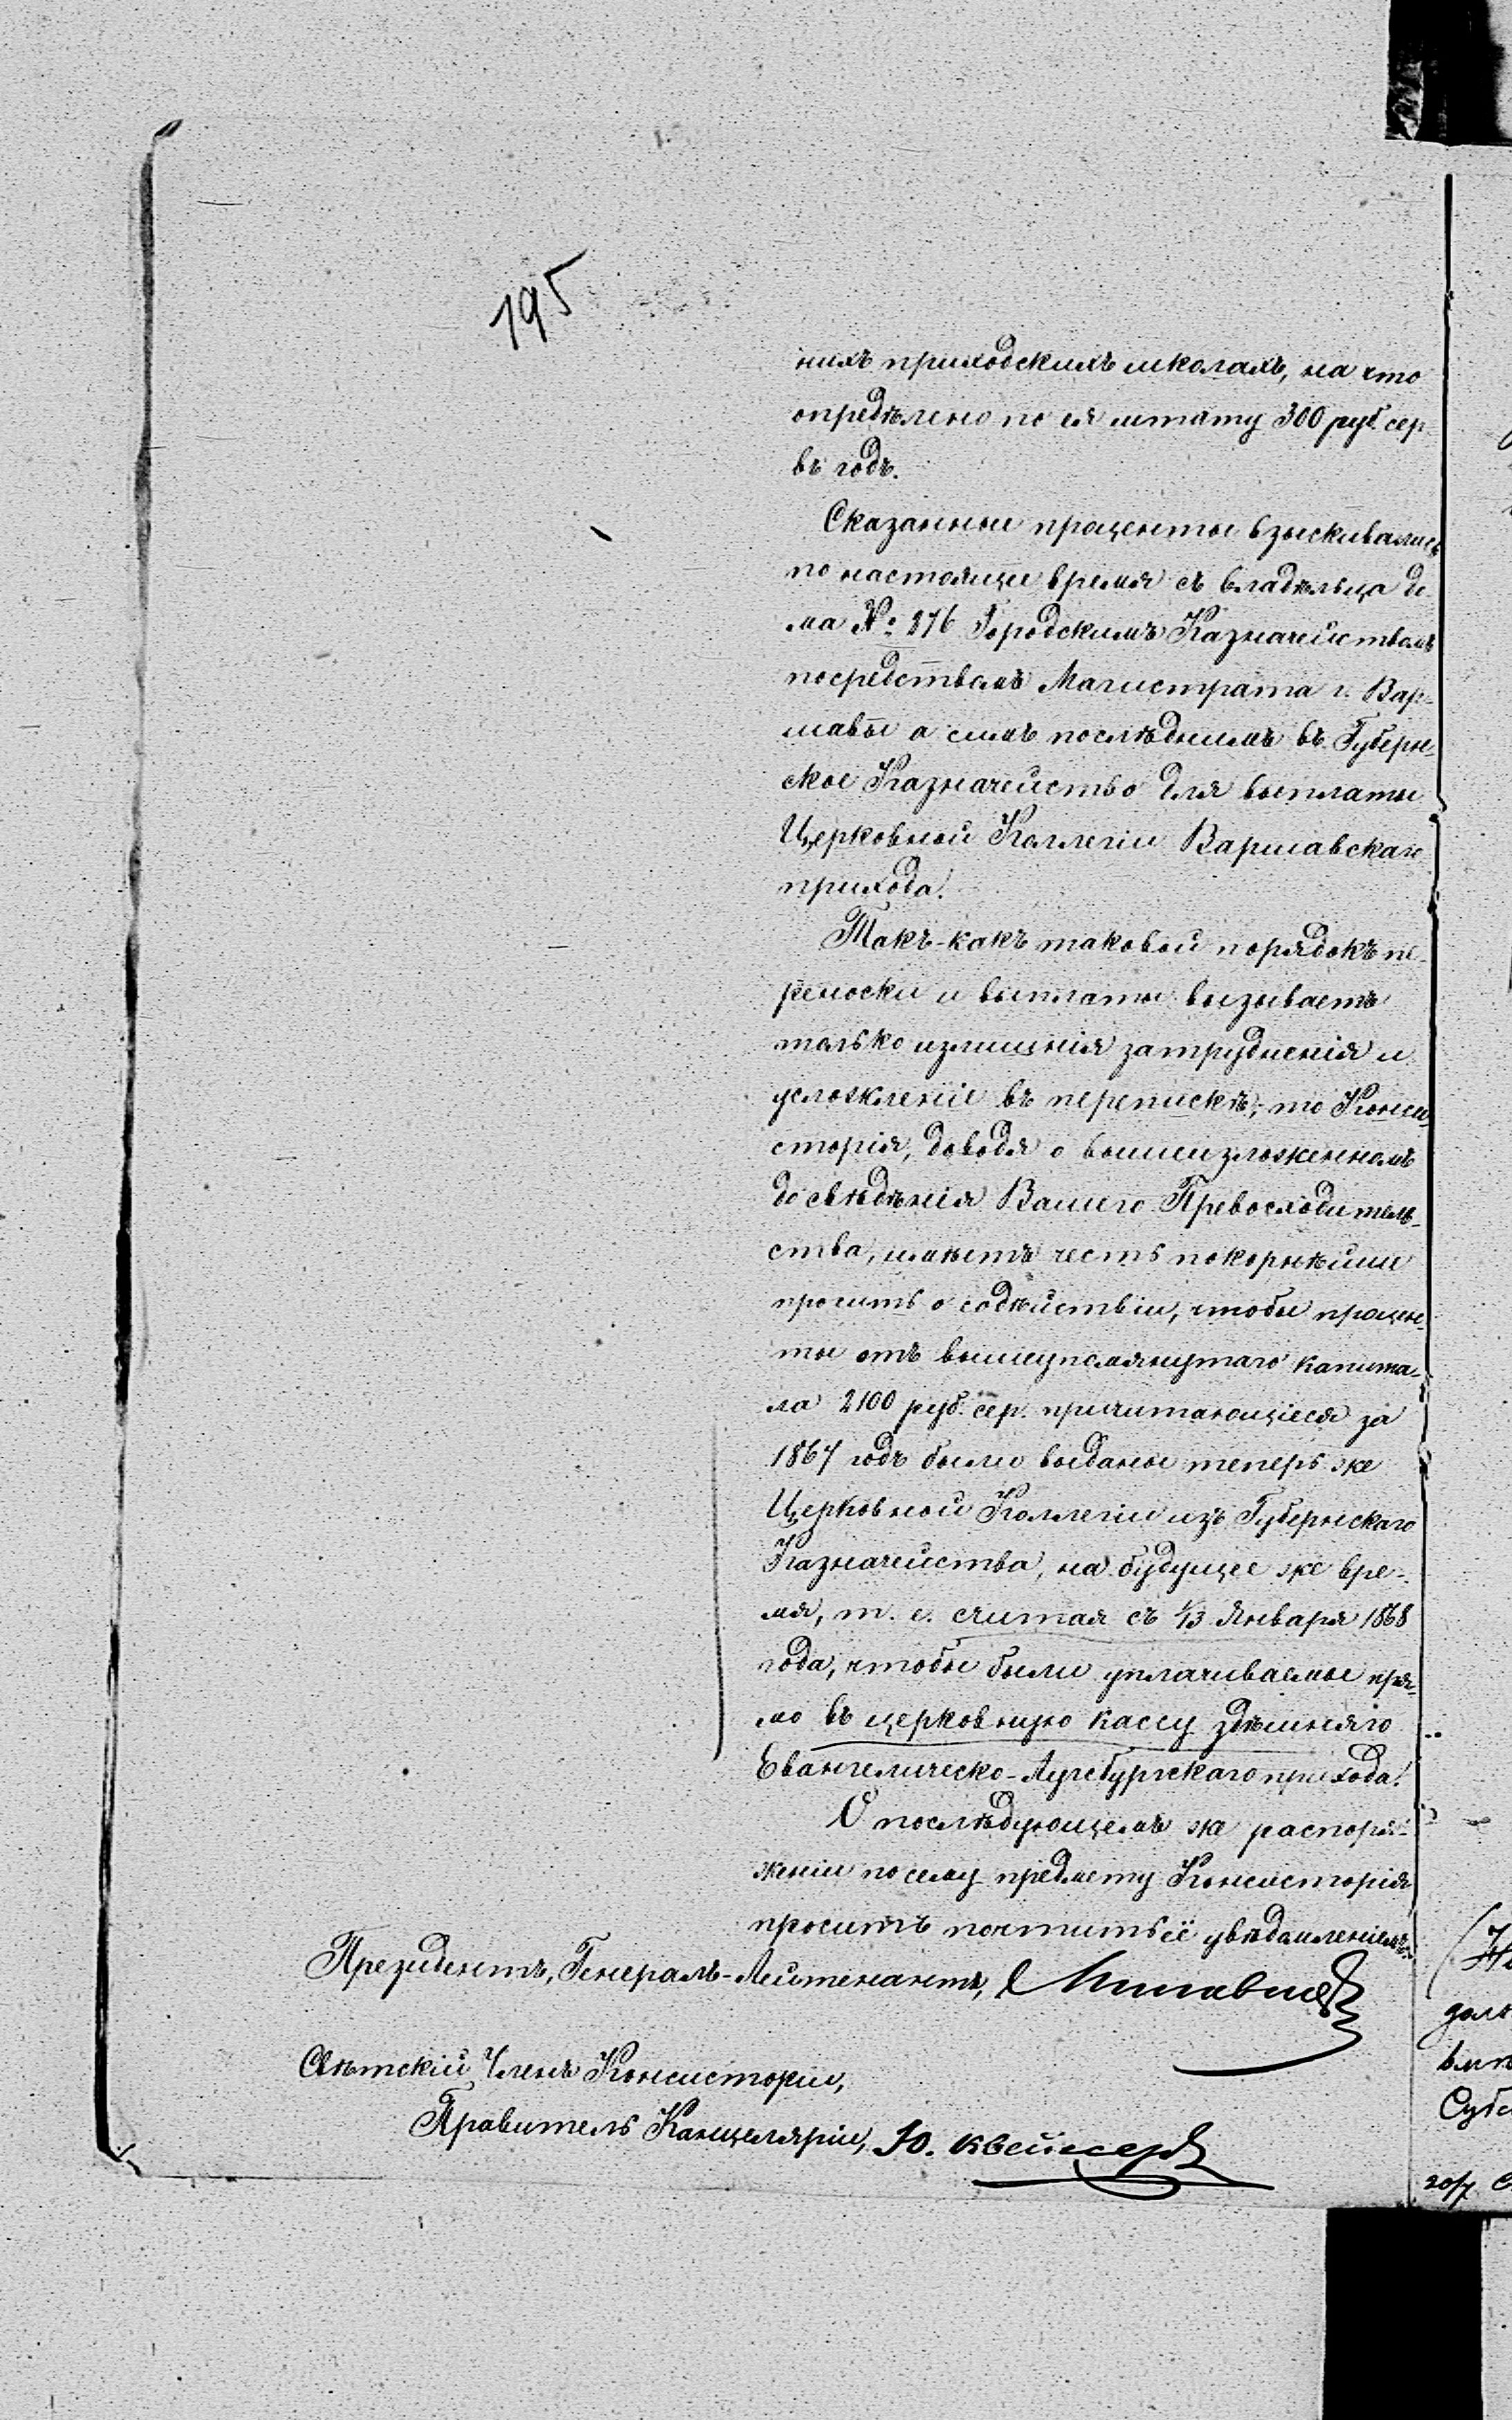 195
нихъ приходскихъ школахъ, на что
опредѣлено по ея штату 300 руб. сер.
въ годъ.
Сказанные проценты взыскивались
по настоящее время съ владѣльца до-
ма №: 276 Городскимъ Казначействомъ
посредствомъ Магистрата г. Вар-
шавы а симъ послѣднимъ въ Губерн-
ское Казначейство для выплаты
Церковной Коллегіи Варшавскаго
прихода.
Такъ-какъ таковой порядокъ пе-
реноски и выплаты вызываетъ
только излишнія затрудненія и
усложненіе въ перепискѣ; то Конси-
сторія, доводя о вышеизложенномъ
до свѣдѣнія Вашего Превосходитель-
ства, имѣетъ честь покорнѣйше
просить о содѣйствіи, чтобы процен-
ты отъ вышеупомянутаго капита-
ла 2100 руб. сер. причитающіеся за
1867 годъ были выданы теперь же
Церковной Коллегіи изъ Губернскаго
Казначейства, на будущее же вре-
мя, т. е. считая съ 1/13 Января 1868
года, чтобы были уплачиваемы пря-
мо въ церковную кассу здѣшняго
Евангелическо-Аугсбургскаго прихода.
О послѣдующемъ же распоря-
женіи по сему предмету Консисторія
проситъ почтить её увѣдомленіемъ.
Президентъ, Генералъ-Лейтенантъ,
Свѣтскій Членъ Консисторіи,
Правитель Канцеляріи, Ю.